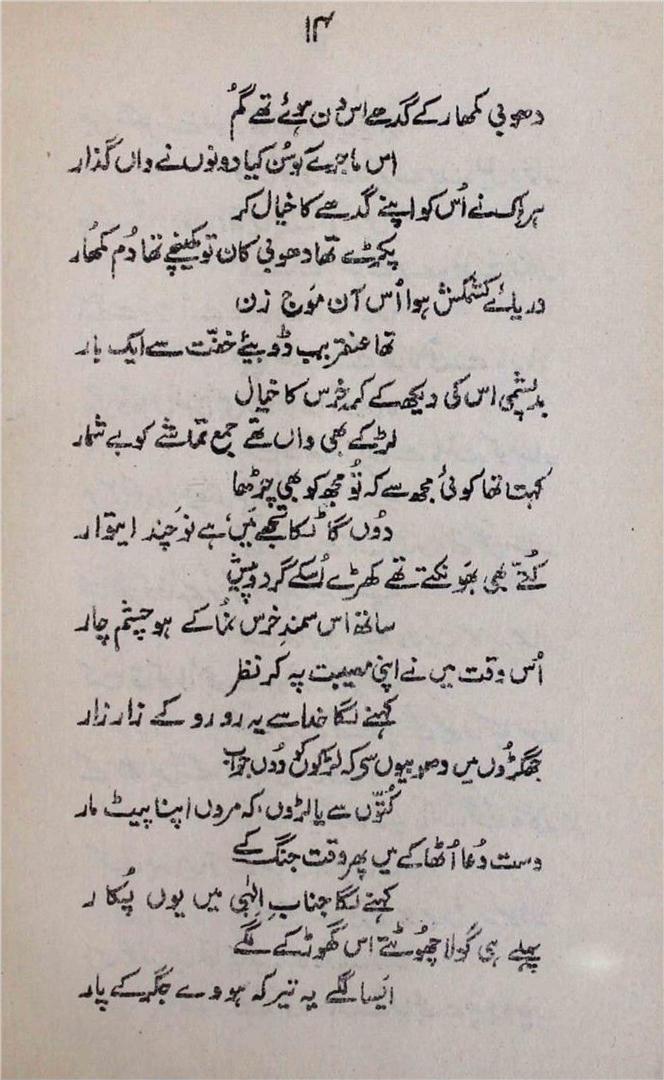 ۱۳
دھوبی کمھار کے گدھے اس دن ہوئے تھے گُم
اس ماجرے کو سُن کیا دونوں نے واں گذار
ہر اک نے اُس کو اپنے گدھے کا خیال کر
پکڑے تھا دھوبی کان تو کھینچے تھا دُم کمُھار
دریائے کشمکش ہوا اُس آن مَوج زن
تھا عنقریب ڈوبیئے خفّت سے ایک بار
بدپشمی اس کی دیکھ کے کر خرس کا خیال
لڑکے بھی واں تھے جمع تماشے کو بے شمار
کہتا تھا کوئی مجھ سے کہ تُو مجھ کو بھی چڑھا
دُوں گا ٹکا تجھے مَیں، ہے نوچندا ایتوار
کُتّے بھی بھَونکتے تھے کھڑے اُسکے گرد و پیش
ساتھ اس سمندِ خرس نُما کے ہو چشم چار
اُس وقت میں نے اپنی مصیبت پہ کر نظر
کہنے لگا خدا سے یہ رو رو کے زار زار
جھگڑُوں میں دھوبیوں سے کہ لڑکوں کو دُوں جواب
کُتّوں سے یا لڑوں، کہ مروں اپنا پیٹ مار
دست دُعا اُٹھا کے میں پھر وقت جنگ کے
کہنے لگا جنابِ اِلٰہی میں یوں پُکار
پہلے ہی گولا چھُوٹتے اس گھوڑے کے لگے
ایسا لگے یہ تیر کہ ہووے جگر کے پار